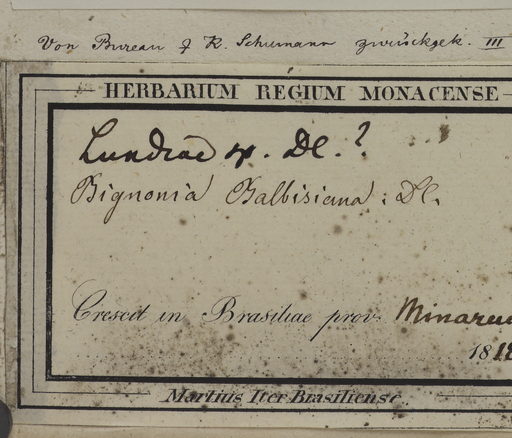 Von Bureau & K. Schumann zurückgek. III
HERBARIUM REGIUM MONACENSE
Lundiae sp. DC.?
Bignonia Balbisiana. DC.
Crescit in Brasiliae prov. Minarum
1818
Martius Iter Brasiliense.